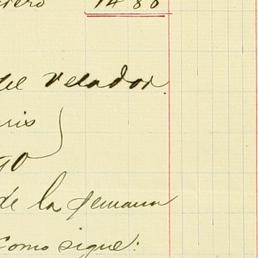 rero 1480
del velador.
ris
go
de la semana
como sigue: